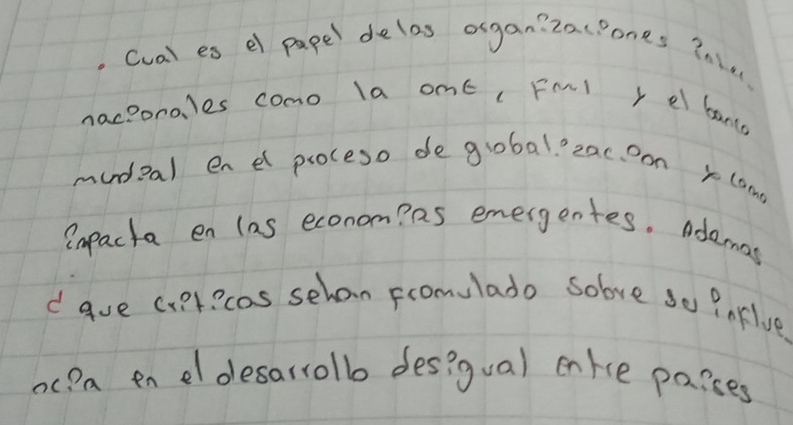 . Cual es el papel delas organizaciones inter
nacionales como la omc, FMI y el banco
mundial en el proceso de globalizacion y como
inpacta en las economias emergentes. Ademas
d que criticas sehan fromulado sobre su influe
ncia en el desarrollo desigual entre paises